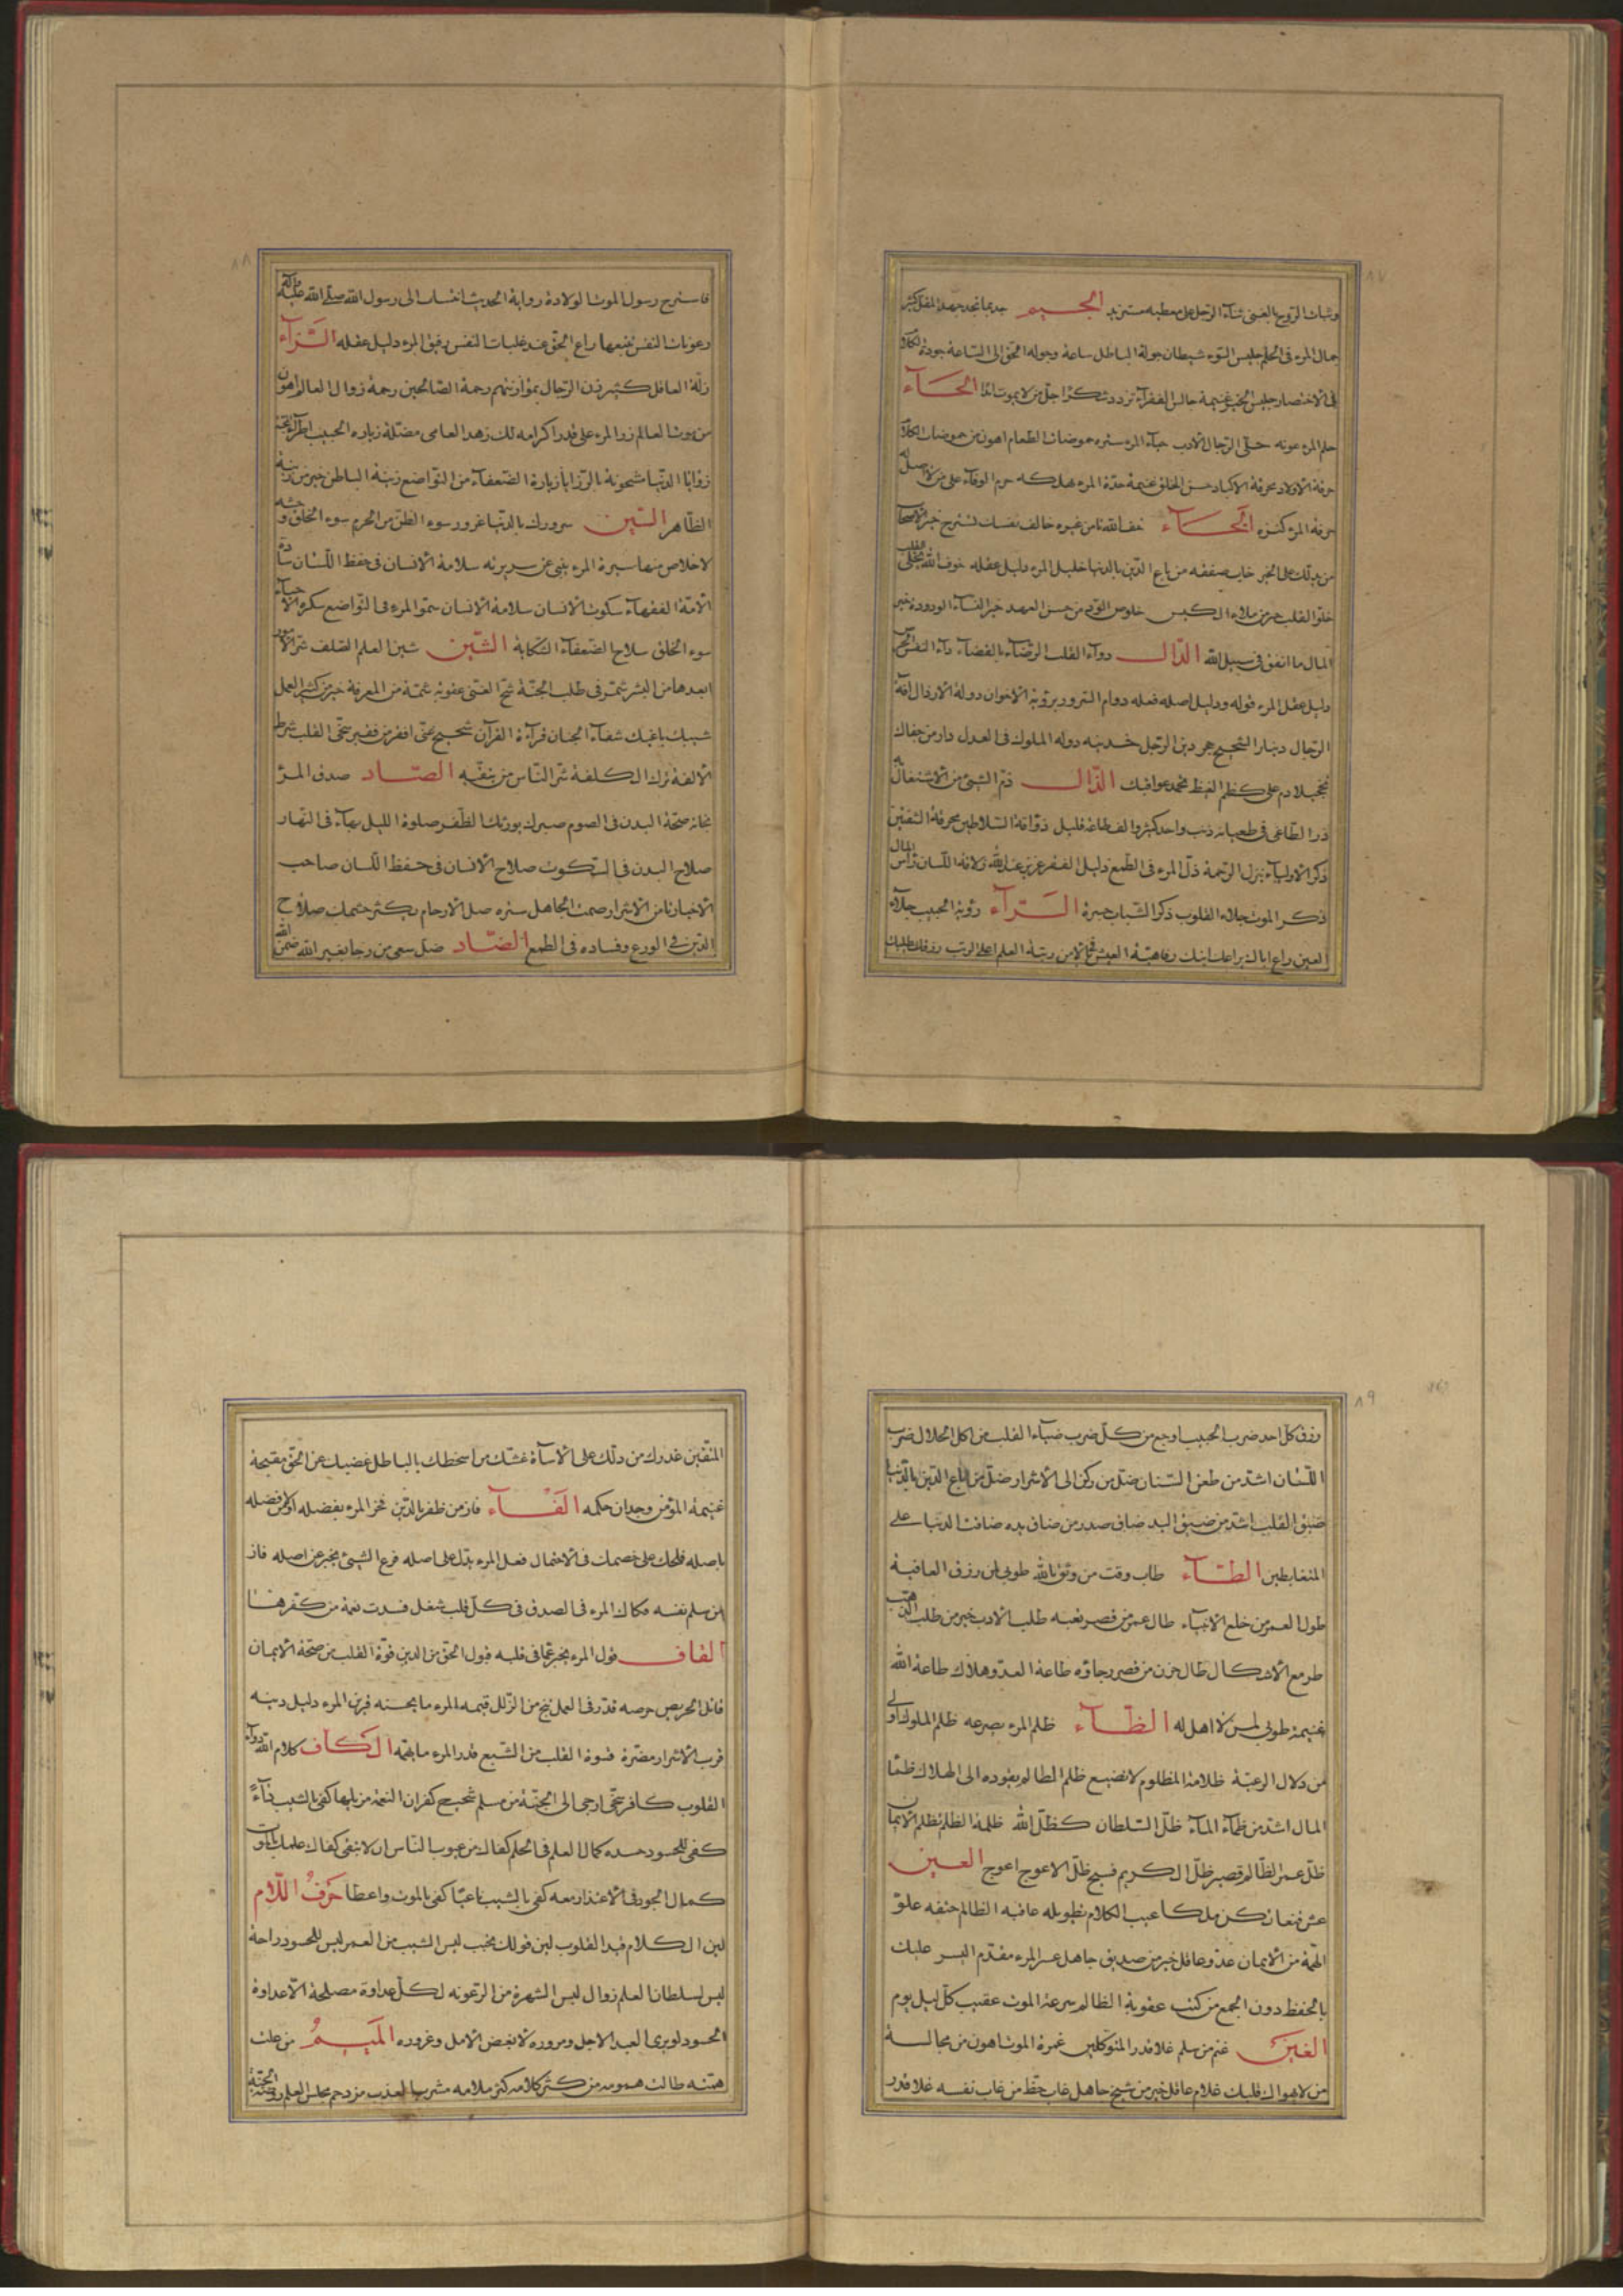 وثبات الروح بالغنى ثناء الرجل على معطيه مستزيد الجيم جد بما تجد جهد المقل كثير
جمال المرء في الحلم جليس السوء شيطان جولة الباطل ساعة وجولة الحق إلى الساعة جودة الكلام
في الاختصار جليس الخير غنيمة جالس الفقراء تزدد شكرا جل من لا يموت الحاء
حلم المرء عونه حلى الرجال الادب حياء المرء ستره حموضات الطعام اهون من حموضات الكلام
حرقة الاولاد محرقة الاكباد حسن الخلق غنيمة حدة المرء تهلكه حرم الوفاء على من لا اصل له
حرفة المرء كنزه الخاء خف الله تأمن غيره خالف نفسك تسترح خير الاصحاب
من يدلك على الخير خاب صفقة من باع الدين بالدنيا خليل المرء دليل عقله خوف الله يجلي القلب
خلو القلب خير من ملاء الكيس خلوص الود من حسن العهد خير النساء الودودة خير
المال ما انفق في سبيل الله الدال دواء القلب الرضاء بالقضاء داء النفس الحرص
دليل عقل المرء قوله ودليل اصله فعله دوام السرور برؤية الاخوان دولة الارذال آفة
الرجال دينار الشحيح حجر دين الرجل خدينه دولة الملوك في العدل دار من جفاك
تخجيلا دم على كظم الغيظ تحمد عواقبك الذال ذم الشيء من الاشتغال به
ذر الطاغي في طغيانه ذنب واحد كثير والف طاعة قليل ذواقة السلاطين محرقة الشفتين
ذكر الاولياء ينزل الرحمة ذل المرء في الطمع ذليل الفقر عزيز عند الله ذلاقة اللسان رأس المال
ذكر الموت جلاء القلوب ذكر الشباب حسرة الراء رؤية الحبيب جلاء
العين راع اباك يراعك ابنك رفاهية العيش في الامن رتبة العلم اعلى الرتب رزقك يطلبك
فاسترح رسول الموت الولادة رواية الحديث انتساب الى رسول الله صلى الله عليه وآله
رعونات النفس تتبعها راع الحق عند غلبات النفس رفيق المرء دليل عقله الزاء
زلة العاقل كثيرة زن الرجال بموازينهم رحمة الصالحين رحمة زوال العالم اهون
من موت العالم زر المرء على قدر اكرامه لك زهد العامي مضلة زيارة الحبيب اطراء المحبة
زوايا الدنيا مشحونة بالرزايا زيارة الضعفاء من التواضع زينة الباطن خير من زينة
الظاهر السين سرورك بالدنيا غرور سوء الظن من الحرم سوء الخلق وحشة
لا خلاص منها سيرة المرء ينبئ عن سريرته سلامة الانسان في حفظ اللسان سادة
الامة الفقهاء سكوت الانسان سلامة الانسان سمو المرء في التواضع سكرة الاحياء
سوء الخلق سلاح الضعفاء الشكاية الشين شين العلم الصلف شر الامور
ابعدها من البشر شمر في طلب الجنة شح الغني عقوبة شمة من المعرفة خير من كثير العمل
شيبك ناعيك شفاء الجنان قراءة القرآن شحيح غني افقر من فقير سخي القلب شرط
الالفة ترك الكلفة شر الناس من يتقيه الصاد صدق المرء
نجاته صحة البدن في الصوم صبرك يورثك الظفر صلوة الليل بهاء في النهار
صلاح البدن في السكوت صلاح الانسان في حفظ اللسان صاحب
الاخيار تأمن الاشرار صمت الجاهل ستره صل الارحام يكثر حشمك صلاح
الدين في الورع وفساده في الطمع الضاد ضل سعي من رجا بغير الله ضمن الله
رزق كل احد ضرب الحبيب اوجع من كل ضرب ضياء القلب من اكل الحلال ضرب
اللسان اشد من طعن السنان ضل من ركن الى الاشرار ضل من باع الدين بالدنيا
ضيق القلب اشد من ضيق اليد ضاق صدر من ضاق يده ضاقت الدنيا على
المتغابطين الطاء طاب وقت من وثق بالله طوبى لمن رزق العافية
طول العمر من خلع الانبياء طال عمر من قصر تعبه طلب الادب خير من طلب الذهب
طر مع الاشكال طال حزن من قصر رجاؤه طاعة العدو هلاك طاعة الله
غنيمة طوبى لمن لا اهل له الظاء ظلم المرء يصرعه ظلم الملوك اولى
من دلال الرعية ظلامة المظلوم لا تضيع ظلم الظالم يقوده الى الهلاك ظمأ
المال اشد من ظمأ الماء ظل السلطان كظل الله ظلمة الظلم تظلم الايمان
ظل عمر الظالم قصير ظل الكريم فسيح ظل الاعوج اعوج العين
عش قنعا تكن ملكا عيب الكلام تطويله عاقبة الظالم حتفه علو
الهمة من الايمان عدو عاقل خير من صديق جاهل عسر المرء مقدم اليسر عليك
بالحفظ دون الجمع من كتب عقوبة الظالم سرعة الموت عقيب كل ليل يوم
الغين غنم من سلم غلا قدر المتوكلين غمرة الموت اهون من مجالسة
من لا يهواك قلبك غلام عاقل خير من شيخ جاهل غاب حظ من غاب نفسه غلا قدر
المتقين غدرك من دلك على الاساءة غشك من اسخطك بالباطل غضبك عن الحق مقبحة
غنيمة المؤمن وجدان حكمه الفاء فاز من ظفر بالدين فخر المرء بفضله اولى من فضله
باصله فلحك على خصمك في الاحتمال فعل المرء يدل على اصله فرع الشيء يخبر عن اصله فاز
من سلم نفسه فكاك المرء في الصدق في كل قلب شغل فسدت نعمة من كفرها
القاف قول المرء يخبر عما في قلبه قبول الحق من الدين قوة القلب من صحة الايمان
قاتل الحريص حرصه قدر في العمل تنج من الزلل قيمة المرء ما يحسنه قرين المرء دليل دينه
قرب الاشرار مضرة قسوة القلب من الشبع قدر المرء ما يهمه الكاف كلام الله دواء
القلوب كافر سخي ارجى الى الجنة من مسلم شحيح كفران النعمة مزيلها كفى بالشيب داء
كفى للحسود حسده كمال العلم في الحلم كفاك من عيوب الناس ان لا تبقى كفاك علمك بالموت
كمال الجود في الاعتذار معه كفى بالشيب ناعيا كفى بالموت واعظا حرف اللام
لين الكلام قيد القلوب لين قولك تحب ليس الشيب من العمر ليس للحسود راحة
ليس لسلطان العلم زوال ليس الشهرة من الرعونة لكل عداوة مصلحة الا عداوة
الحسود لو يرى العبد الاجل ومروره لابغض الامل وغروره الميم من علت
همته طالت همومه من كثر كلامه كثر ملامه مشرب العذب مزدحم مجلس العلم روضة الجنة